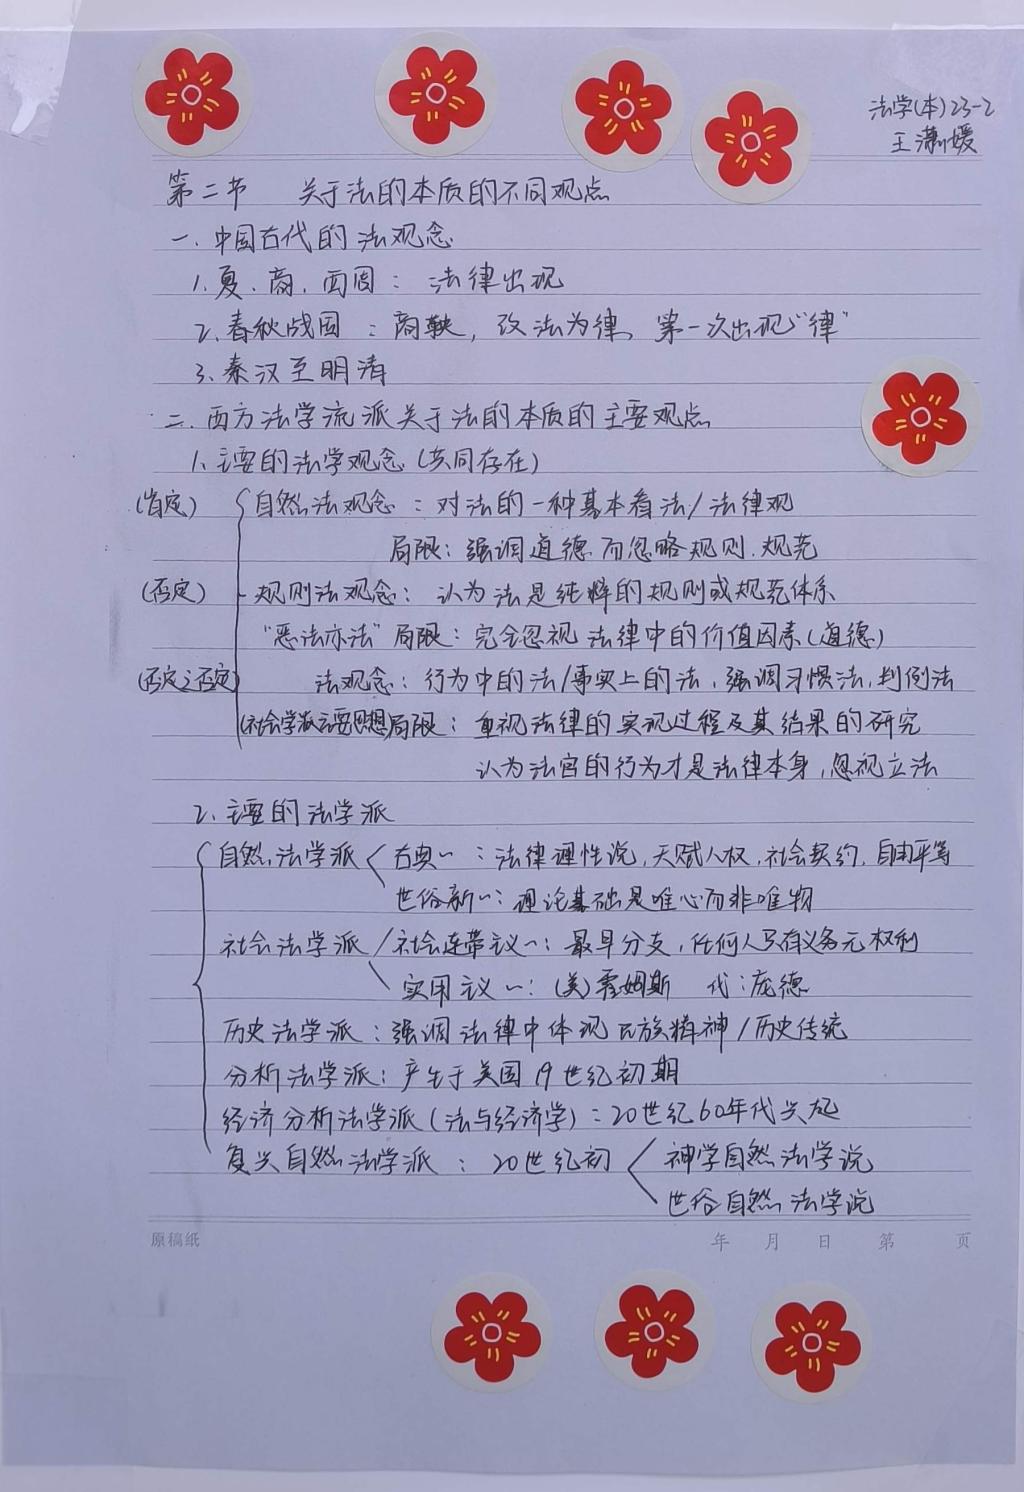 法学(本)23-2
王潇媛
第二节 关于法的本质的不同观点
一.中国古代的法观念
1.夏.商.西周: 法律出现
2.春秋战国:商鞅,改法为律,第一次出现"律"
3.秦汉至明清
二.西方法学流派关于法的本质的主要观点
1.主要的法学观念(共同存在)
(肯定) 自然法观念:对法的一种基本看法/法律观
局限:强调道德而忽略规则.规范
(否定) 规则法观念: 认为法是纯粹的规则或规范体系
"恶法亦法"局限:完全忽视法律中的价值因素(道德)
(否定之否定) 法观念:行为中的法/事实上的法,强调习惯法,判例法
(社会学派主要思想)局限:重视法律的实现过程及其结果的研究
认为法官的行为才是法律本身,忽视立法
2.主要的法学派
自然法学派 古典~:法律理性说,天赋人权,社会契约,自由平等
世俗新~:理论基础是唯心而非唯物
社会法学派 社会连带主义~:最早分支,任何人只有义务无权利
实用主义~:(美)詹姆斯 代:庞德
历史法学派:强调法律中体现民族精神/历史传统
分析法学派:产生于英国19世纪初期
经济分析法学派(法与经济学):20世纪60年代兴起
复兴自然法学派: 20世纪初 神学自然法学说
世俗自然法学说
原稿纸 年 月 日 第 页